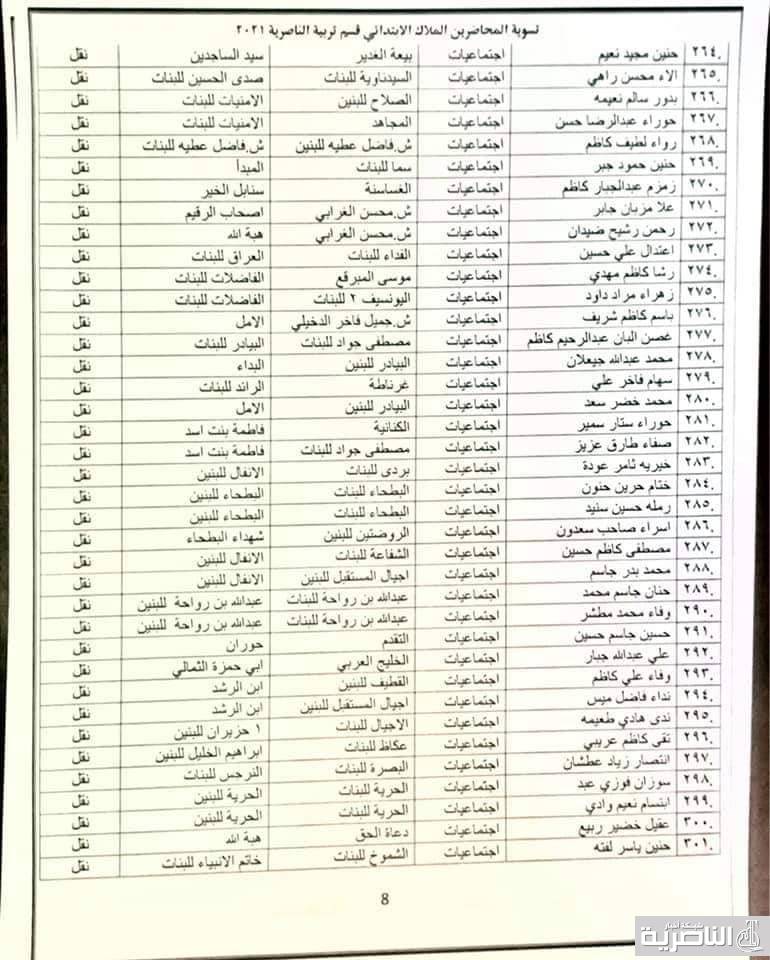 تسوية المحاضرين الملاك الابتدائي قسم تربية الناصرية ٢٠٢١
٢٦٤. حنين مجيد نعيم اجتماعيات بيعة الغدير سيد الساجدين نقل
٢٦٥. الاء محسن راهي اجتماعيات السيدناوية للبنات صدى الحسين للبنات نقل
٢٦٦. بدور سالم نعيمه اجتماعيات الصلاح للبنين الامنيات للبنات نقل
٢٦٧. حوراء عبدالرضا حسن اجتماعيات المجاهد الامنيات للبنات نقل
٢٦٨. رواء لطيف كاظم اجتماعيات ش.فاضل عطيه للبنين ش.فاضل عطيه للبنات نقل
٢٦٩. حنين حمود جبر اجتماعيات سما للبنات المبدأ نقل
٢٧٠. زمزم عبدالجبار كاظم اجتماعيات الغساسنة سنابل الخير نقل
٢٧١. علا مزبان جابر اجتماعيات ش.محسن الغرابي اصحاب الرقيم نقل
٢٧٢. رحمن رشيح ضيدان اجتماعيات ش.محسن الغرابي هبة الله نقل
٢٧٣. اعتدال علي حسين اجتماعيات الفداء للبنات العراق للبنات نقل
٢٧٤. رشا كاظم مهدي اجتماعيات موسى المبرقع الفاضلات للبنات نقل
٢٧٥. زهراء مراد داود اجتماعيات اليونسيف ٢ للبنات الفاضلات للبنات نقل
٢٧٦. باسم كاظم شريف اجتماعيات ش.جميل فاخر الدخيلي الامل نقل
٢٧٧. غصن البان عبدالرحيم كاظم اجتماعيات مصطفى جواد للبنات البيادر للبنات نقل
٢٧٨. محمد عبدالله جيعلان اجتماعيات البيادر للبنين البداء نقل
٢٧٩. سهام فاخر علي اجتماعيات غرناطة الرائد للبنات نقل
٢٨٠. محمد خضر سعد اجتماعيات البيادر للبنين الامل نقل
٢٨١. حوراء ستار سمير اجتماعيات الكنانية فاطمة بنت اسد نقل
٢٨٢. صفاء طارق عزيز اجتماعيات مصطفى جواد للبنات فاطمة بنت اسد نقل
٢٨٣. خيريه ثامر عودة اجتماعيات بردى للبنات الانفال للبنين نقل
٢٨٤. ختام حرين حنون اجتماعيات البطحاء للبنات البطحاء للبنين نقل
٢٨٥. رمله حسين سنيد اجتماعيات البطحاء للبنات البطحاء للبنين نقل
٢٨٦. اسراء صاحب سعدون اجتماعيات الروضتين للبنين شهداء البطحاء نقل
٢٨٧. مصطفى كاظم حسين اجتماعيات الشفاعة للبنات الانفال للبنين نقل
٢٨٨. محمد بدر جاسم اجتماعيات اجيال المستقبل للبنين الانفال للبنين نقل
٢٨٩. حنان جاسم محمد اجتماعيات عبدالله بن رواحة للبنات عبدالله بن رواحة للبنين نقل
٢٩٠. وفاء محمد مطشر اجتماعيات عبدالله بن رواحة للبنات عبدالله بن رواحة للبنين نقل
٢٩١. حسين جاسم حسين اجتماعيات التقدم حوران نقل
٢٩٢. علي عبدالله جبار اجتماعيات الخليج العربي ابي حمزة الثمالي نقل
٢٩٣. وفاء علي كاظم اجتماعيات القطيف للبنين ابن الرشد نقل
٢٩٤. نداء فاضل ميس اجتماعيات اجيال المستقبل للبنين ابن الرشد نقل
٢٩٥. ندى هادي طعيمه اجتماعيات الاجيال للبنات ١ حزيران للبنين نقل
٢٩٦. تقى كاظم عريبي اجتماعيات عكاظ للبنات ابراهيم الخليل للبنين نقل
٢٩٧. انتصار زياد عطشان اجتماعيات البصرة للبنات النرجس للبنات نقل
٢٩٨. سوزان فوزي عبد اجتماعيات الحرية للبنات الحرية للبنين نقل
٢٩٩. ابتسام نعيم وادي اجتماعيات الحرية للبنات الحرية للبنين نقل
٣٠٠. عقيل خضير ربيع اجتماعيات دعاة الحق هبة الله نقل
٣٠١. حنين ياسر لفته اجتماعيات الشموخ للبنات خاتم الانبياء للبنات نقل
8
شبكة اخبار
الناصرية